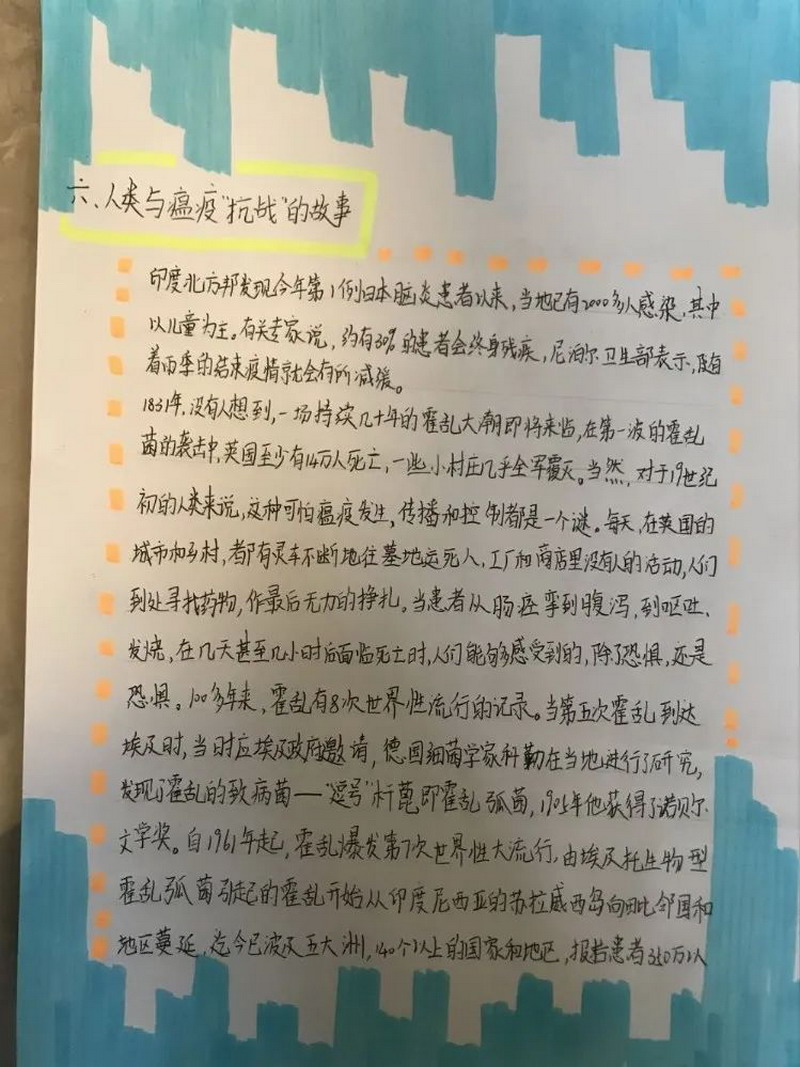 六、人类与瘟疫“抗战”的故事
印度北方邦发现今年第1例日本脑炎患者以来,当地已有2000多人感染,其中
以儿童为主。有关专家说,约有30%的患者会终身残疾,尼泊尔卫生部表示,随
着雨季的结束疫情就会有所减缓。
1831年,没有人想到,一场持续几十年的霍乱大潮即将来临,在第一波的霍乱
菌的袭击中,英国至少有14万人死亡,一些小村庄几乎全军覆灭。当然,对于19世纪
初的人类来说,这种可怕瘟疫发生,传播和控制都是一个谜。每天,在英国的
城市和乡村,都有灵车不断地往墓地运死人,工厂和商店里没有人的活动,人们
到处寻找药物,作最后无力的挣扎。当患者从肠痉挛到腹泻,到呕吐、
发烧,在几天甚至几小时后面临死亡时,人们能够感受到的,除了恐惧,还是
恐惧。100多年来,霍乱有8次世界性流行的记录。当第五次霍乱到达
埃及时,当时应埃及政府邀请,德国细菌学家科勒在当地进行了研究,
发现了霍乱的致病菌——“逗号”杆菌即霍乱弧菌,1905年他获得了诺贝尔
文学奖。自1961年起,霍乱爆发第7次世界性大流行,由埃及托生物型
霍乱弧菌引起的霍乱开始从印度尼西亚的苏拉威西岛向毗邻国和
地区蔓延,迄今已波及五大洲,140个以上的国家和地区,报告患者350万以